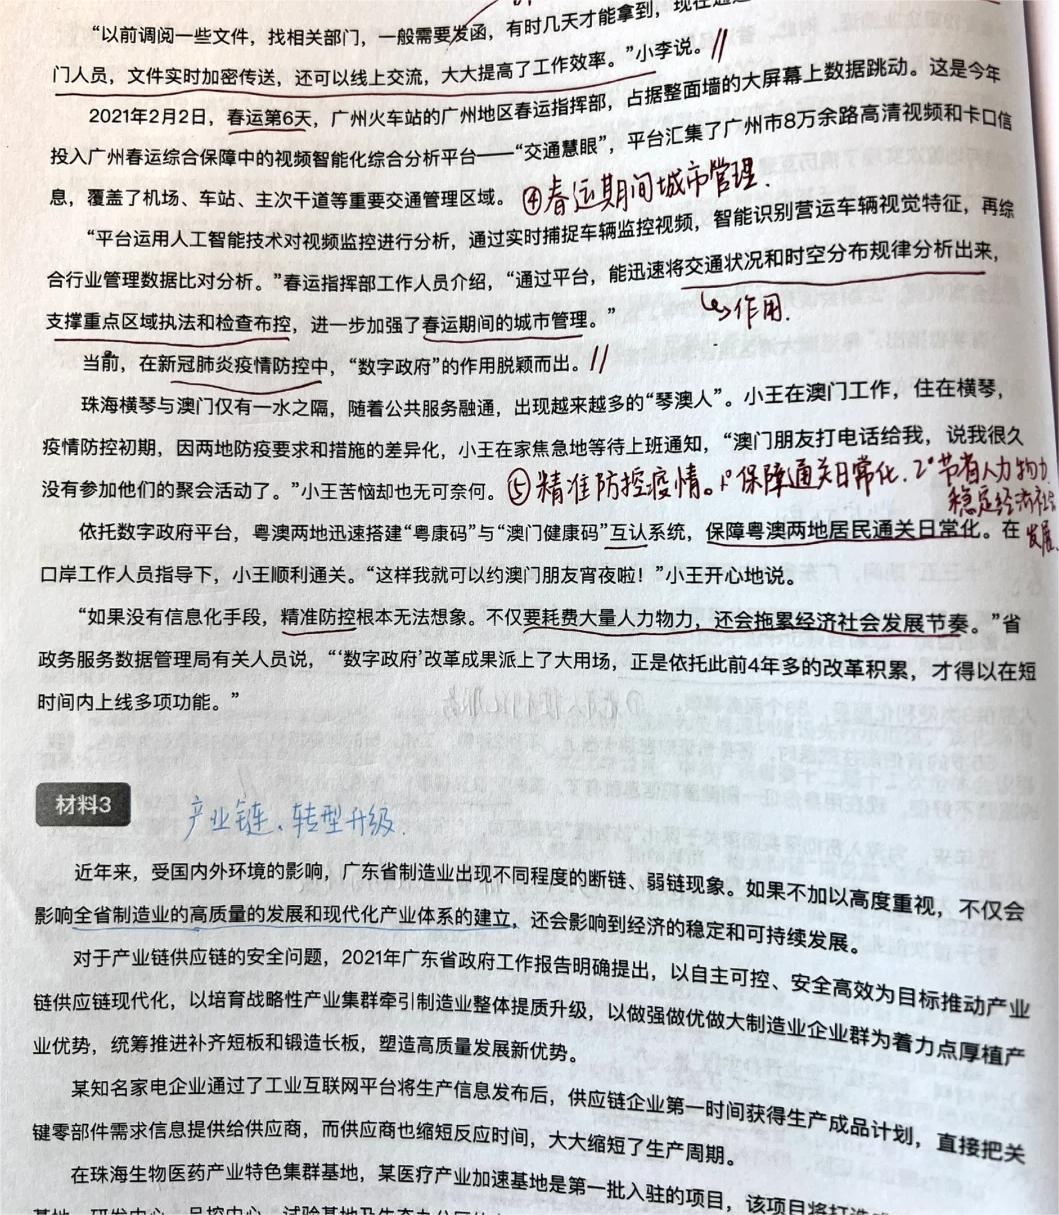 “以前调阅一些文件，找相关部门，一般需要发函，有时几天才能拿到，现在通过
门人员，文件实时加密传送，还可以线上交流，大大提高了工作效率。”小李说。
2021年2月2日，春运第6天，广州火车站的广州地区春运指挥部，占据整面墙的大屏幕上数据跳动。这是今年
投入广州春运综合保障中的视频智能化综合分析平台——“交通慧眼”，平台汇集了广州市8万余路高清视频和卡口信
息，覆盖了机场、车站、主次干道等重要交通管理区域。 ④春运期间城市管理.
“平台运用人工智能技术对视频监控进行分析，通过实时捕捉车辆监控视频，智能识别营运车辆视觉特征，再综
合行业管理数据比对分析。”春运指挥部工作人员介绍，“通过平台，能迅速将交通状况和时空分布规律分析出来，
作用.
支撑重点区域执法和检查布控，进一步加强了春运期间的城市管理。”
当前，在新冠肺炎疫情防控中，“数字政府”的作用脱颖而出。
珠海横琴与澳门仅有一水之隔，随着公共服务融通，出现越来越多的“琴澳人”。小王在澳门工作，住在横琴，
疫情防控初期，因两地防疫要求和措施的差异化，小王在家焦急地等待上班通知，“澳门朋友打电话给我，说我很久
没有参加他们的聚会活动了。”小王苦恼却也无可奈何。 ⑤精准防控疫情。1°保障通关日常化. 2°节省人力物力
稳定经济社会
发展.
依托数字政府平台，粤澳两地迅速搭建“粤康码”与“澳门健康码”互认系统，保障粤澳两地居民通关日常化。在
口岸工作人员指导下，小王顺利通关。“这样我就可以约澳门朋友宵夜啦！”小王开心地说。
“如果没有信息化手段，精准防控根本无法想象。不仅要耗费大量人力物力，还会拖累经济社会发展节奏。”省
政务服务数据管理局有关人员说，“‘数字政府’改革成果派上了大用场，正是依托此前4年多的改革积累，才得以在短
时间内上线多项功能。”
材料3 产业链、转型升级.
近年来，受国内外环境的影响，广东省制造业出现不同程度的断链、弱链现象。如果不加以高度重视，不仅会
影响全省制造业的高质量的发展和现代化产业体系的建立，还会影响到经济的稳定和可持续发展。
对于产业链供应链的安全问题，2021年广东省政府工作报告明确提出，以自主可控、安全高效为目标推动产业
链供应链现代化，以培育战略性产业集群牵引制造业整体提质升级，以做强做优做大制造业企业群为着力点厚植产
业优势，统筹推进补齐短板和锻造长板，塑造高质量发展新优势。
某知名家电企业通过了工业互联网平台将生产信息发布后，供应链企业第一时间获得生产成品计划，直接把关
键零部件需求信息提供给供应商，而供应商也缩短反应时间，大大缩短了生产周期。
在珠海生物医药产业特色集群基地，某医疗产业加速基地是第一批入驻的项目，该项目将打造